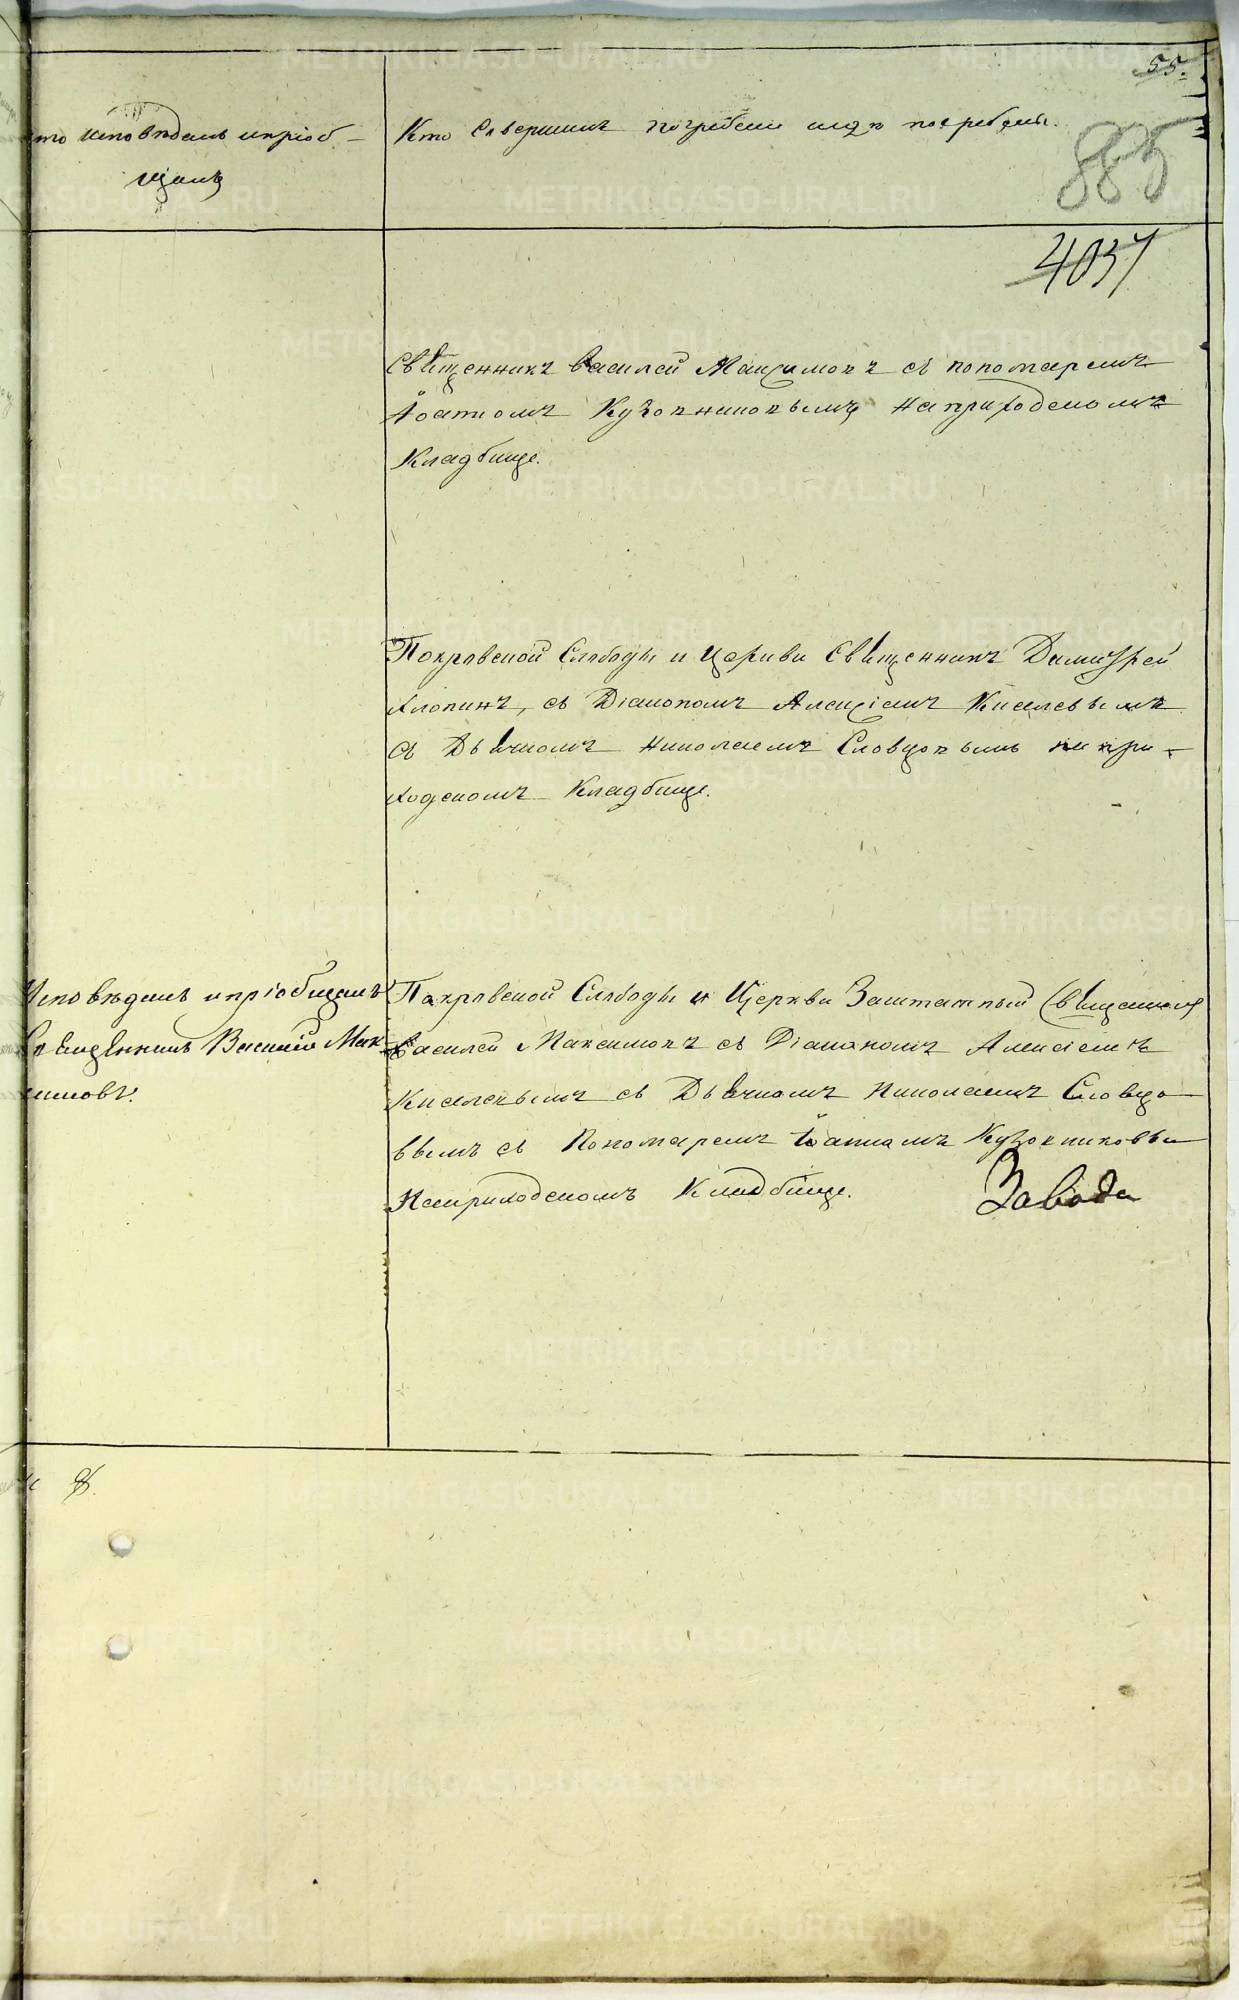 55.
Кто исповѣдалъ и пріоб-
щалъ
Кто Совершилъ погребеніе и гдѣ погребены.
885
4037
Священникъ Василей Максимовъ съ пономаремъ
Іоанномъ Кузовниковымъ на приходскомъ
Кладбище.
Покровской Слободы и Церкви Священникъ Димитрей
Хлопинъ, съ Діакономъ Алексіемъ Киселевымъ
съ Дьячкомъ Николаемъ Словцовымъ на при-
ходскомъ Кладбище.
Исповѣдалъ и пріобщалъ
Священникъ Василій Мак-
симовъ.
Покровской Слободы и Церкви Заштатный Священникъ
Василей Максимовъ съ Діакономъ Алексіемъ
Киселевымъ съ Дьячкомъ Николаемъ Словцо-
вымъ съ Пономаремъ Іоанномъ Кузовниковым
На приходскомъ Кладбище.
Завода
METRIKI.GASO-URAL.RU